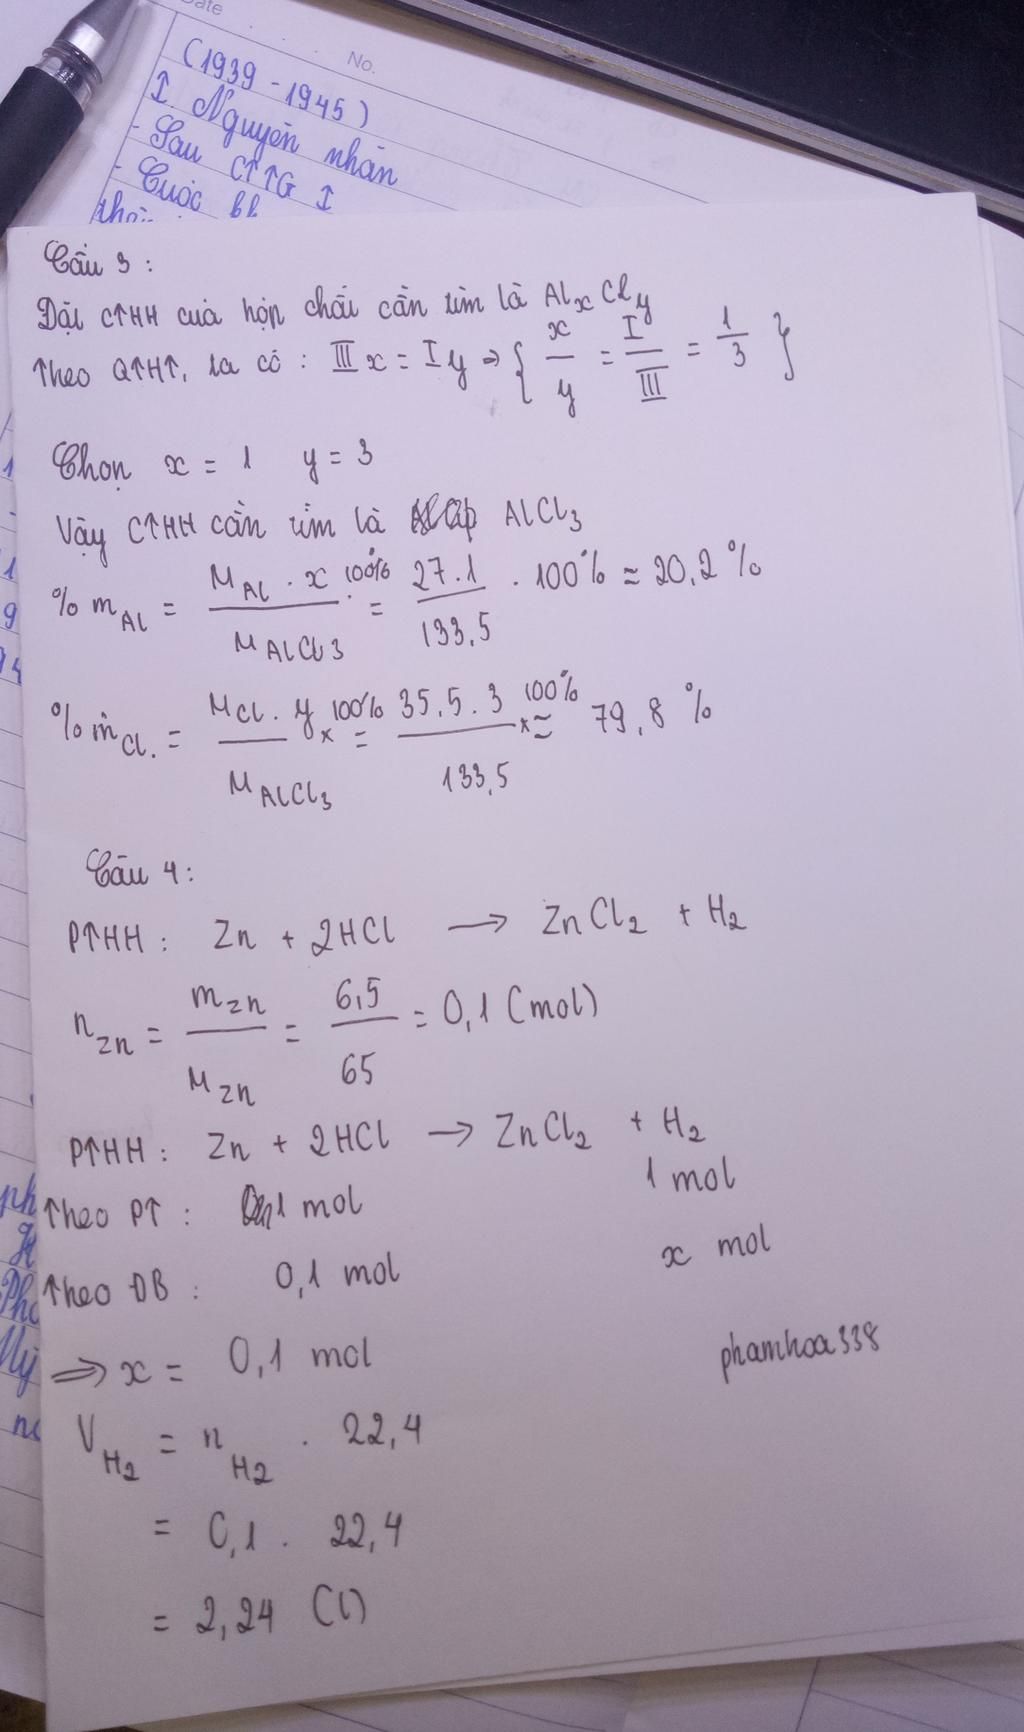 Date
No.
(1939 - 1945)
I. Nguyên nhân
- Sau CTTG I
- Cuộc
Câu 3 :
Đặt CTHH của hợp chất cần tìm là AlxCly
Theo QTHT, ta có : III x = I y => { x/y = I/III = 1/3 }
Chọn x = 1 y = 3
Vậy CTHH cần tìm là AlCl3
% mAl = MAl . x / MAlCl3 . 100% = 27.1 / 133,5 . 100% ≈ 20,2 %
% mCl. = MCl . y / MAlCl3 x 100% = 35,5 . 3 / 133,5 x 100% ≈ 79,8 %
Câu 4 :
PTHH : Zn + 2HCl → ZnCl2 + H2
nZn = mZn / MZn = 6,5 / 65 = 0,1 (mol)
PTHH : Zn + 2HCl → ZnCl2 + H2
Theo PT : 1 mol 1 mol
Theo ĐB : 0,1 mol x mol
=> x = 0,1 mol
phamhoa338
VH2 = nH2 . 22,4
= 0,1 . 22,4
= 2,24 (l)